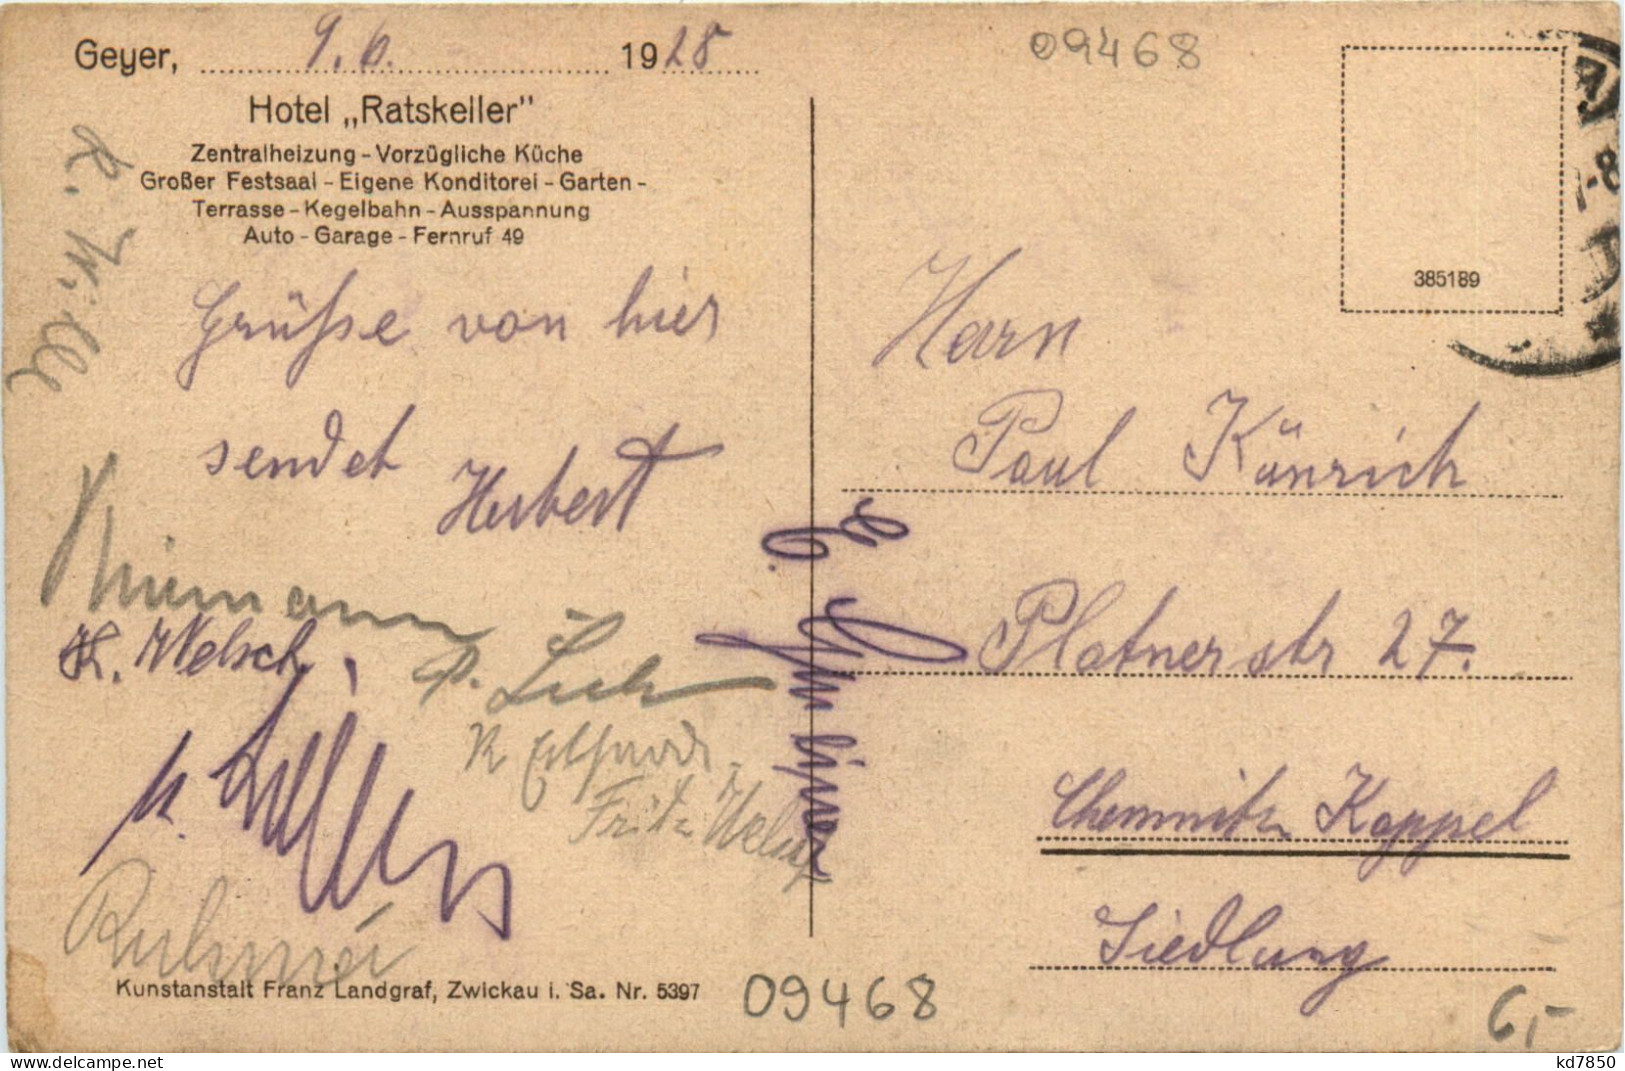 Geyer, 9.6. 1928
09468
Hotel „Ratskeller"
Zentralheizung - Vorzügliche Küche
Großer Festsaal - Eigene Konditorei - Garten -
Terrasse - Kegelbahn - Ausspannung
Auto - Garage - Fernruf 49
385189
Grüße von hier
sendet Herbert
K. Wille
H. Welsch.
Fritz Welsch
Herrn
Paul Känrich
Platnerstr 27.
Chemnitz Kappel
Siedlung
Kunstanstalt Franz Landgraf, Zwickau i. Sa. Nr. 5397
09468
6,-
delcampe.net
kd7850